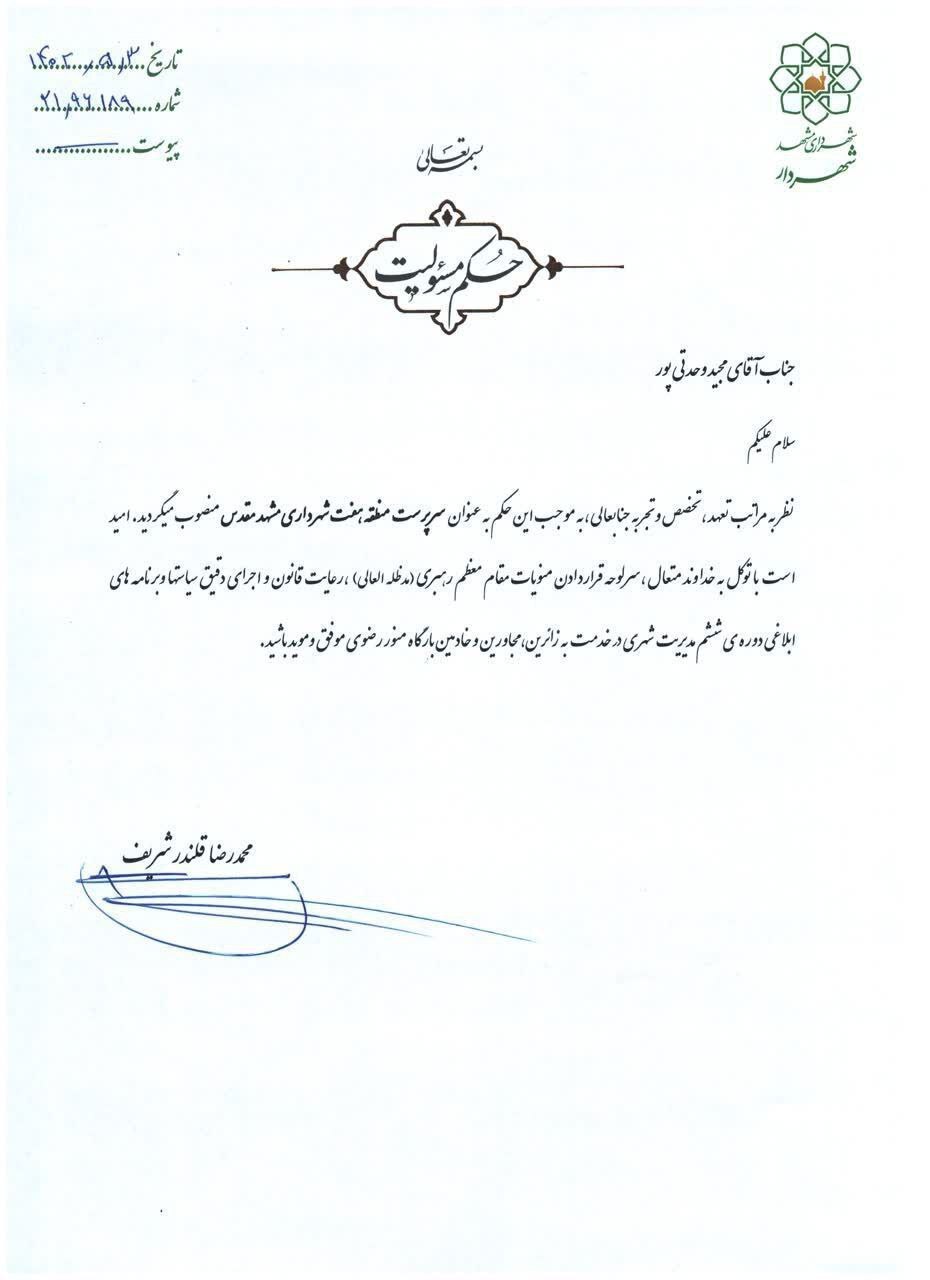 شهرداری مشهد
شهردار
تاریخ ۱۴۰۲/۵/۳
شماره ۲۱/۹۶۱۸۹
پیوست
بسمه تعالی
حکم مسئولیت
جناب آقای مجید وحدتی پور
سلام علیکم
نظر به مراتب تعهد، تخصص و تجربه جنابعالی، به موجب این حکم به عنوان سرپرست منطقه هفت شهرداری مشهد مقدس منصوب میگردید. امید
است با توکل به خداوند متعال، سرلوحه قرار دادن منویات مقام معظم رهبری (مدظله العالی)، رعایت قانون و اجرای دقیق سیاستها و برنامه های
ابلاغی دوره ی ششم مدیریت شهری در خدمت به زائرین، مجاورین و خادمین بارگاه منور رضوی موفق و موید باشید.
محمدرضا قلندر شریف